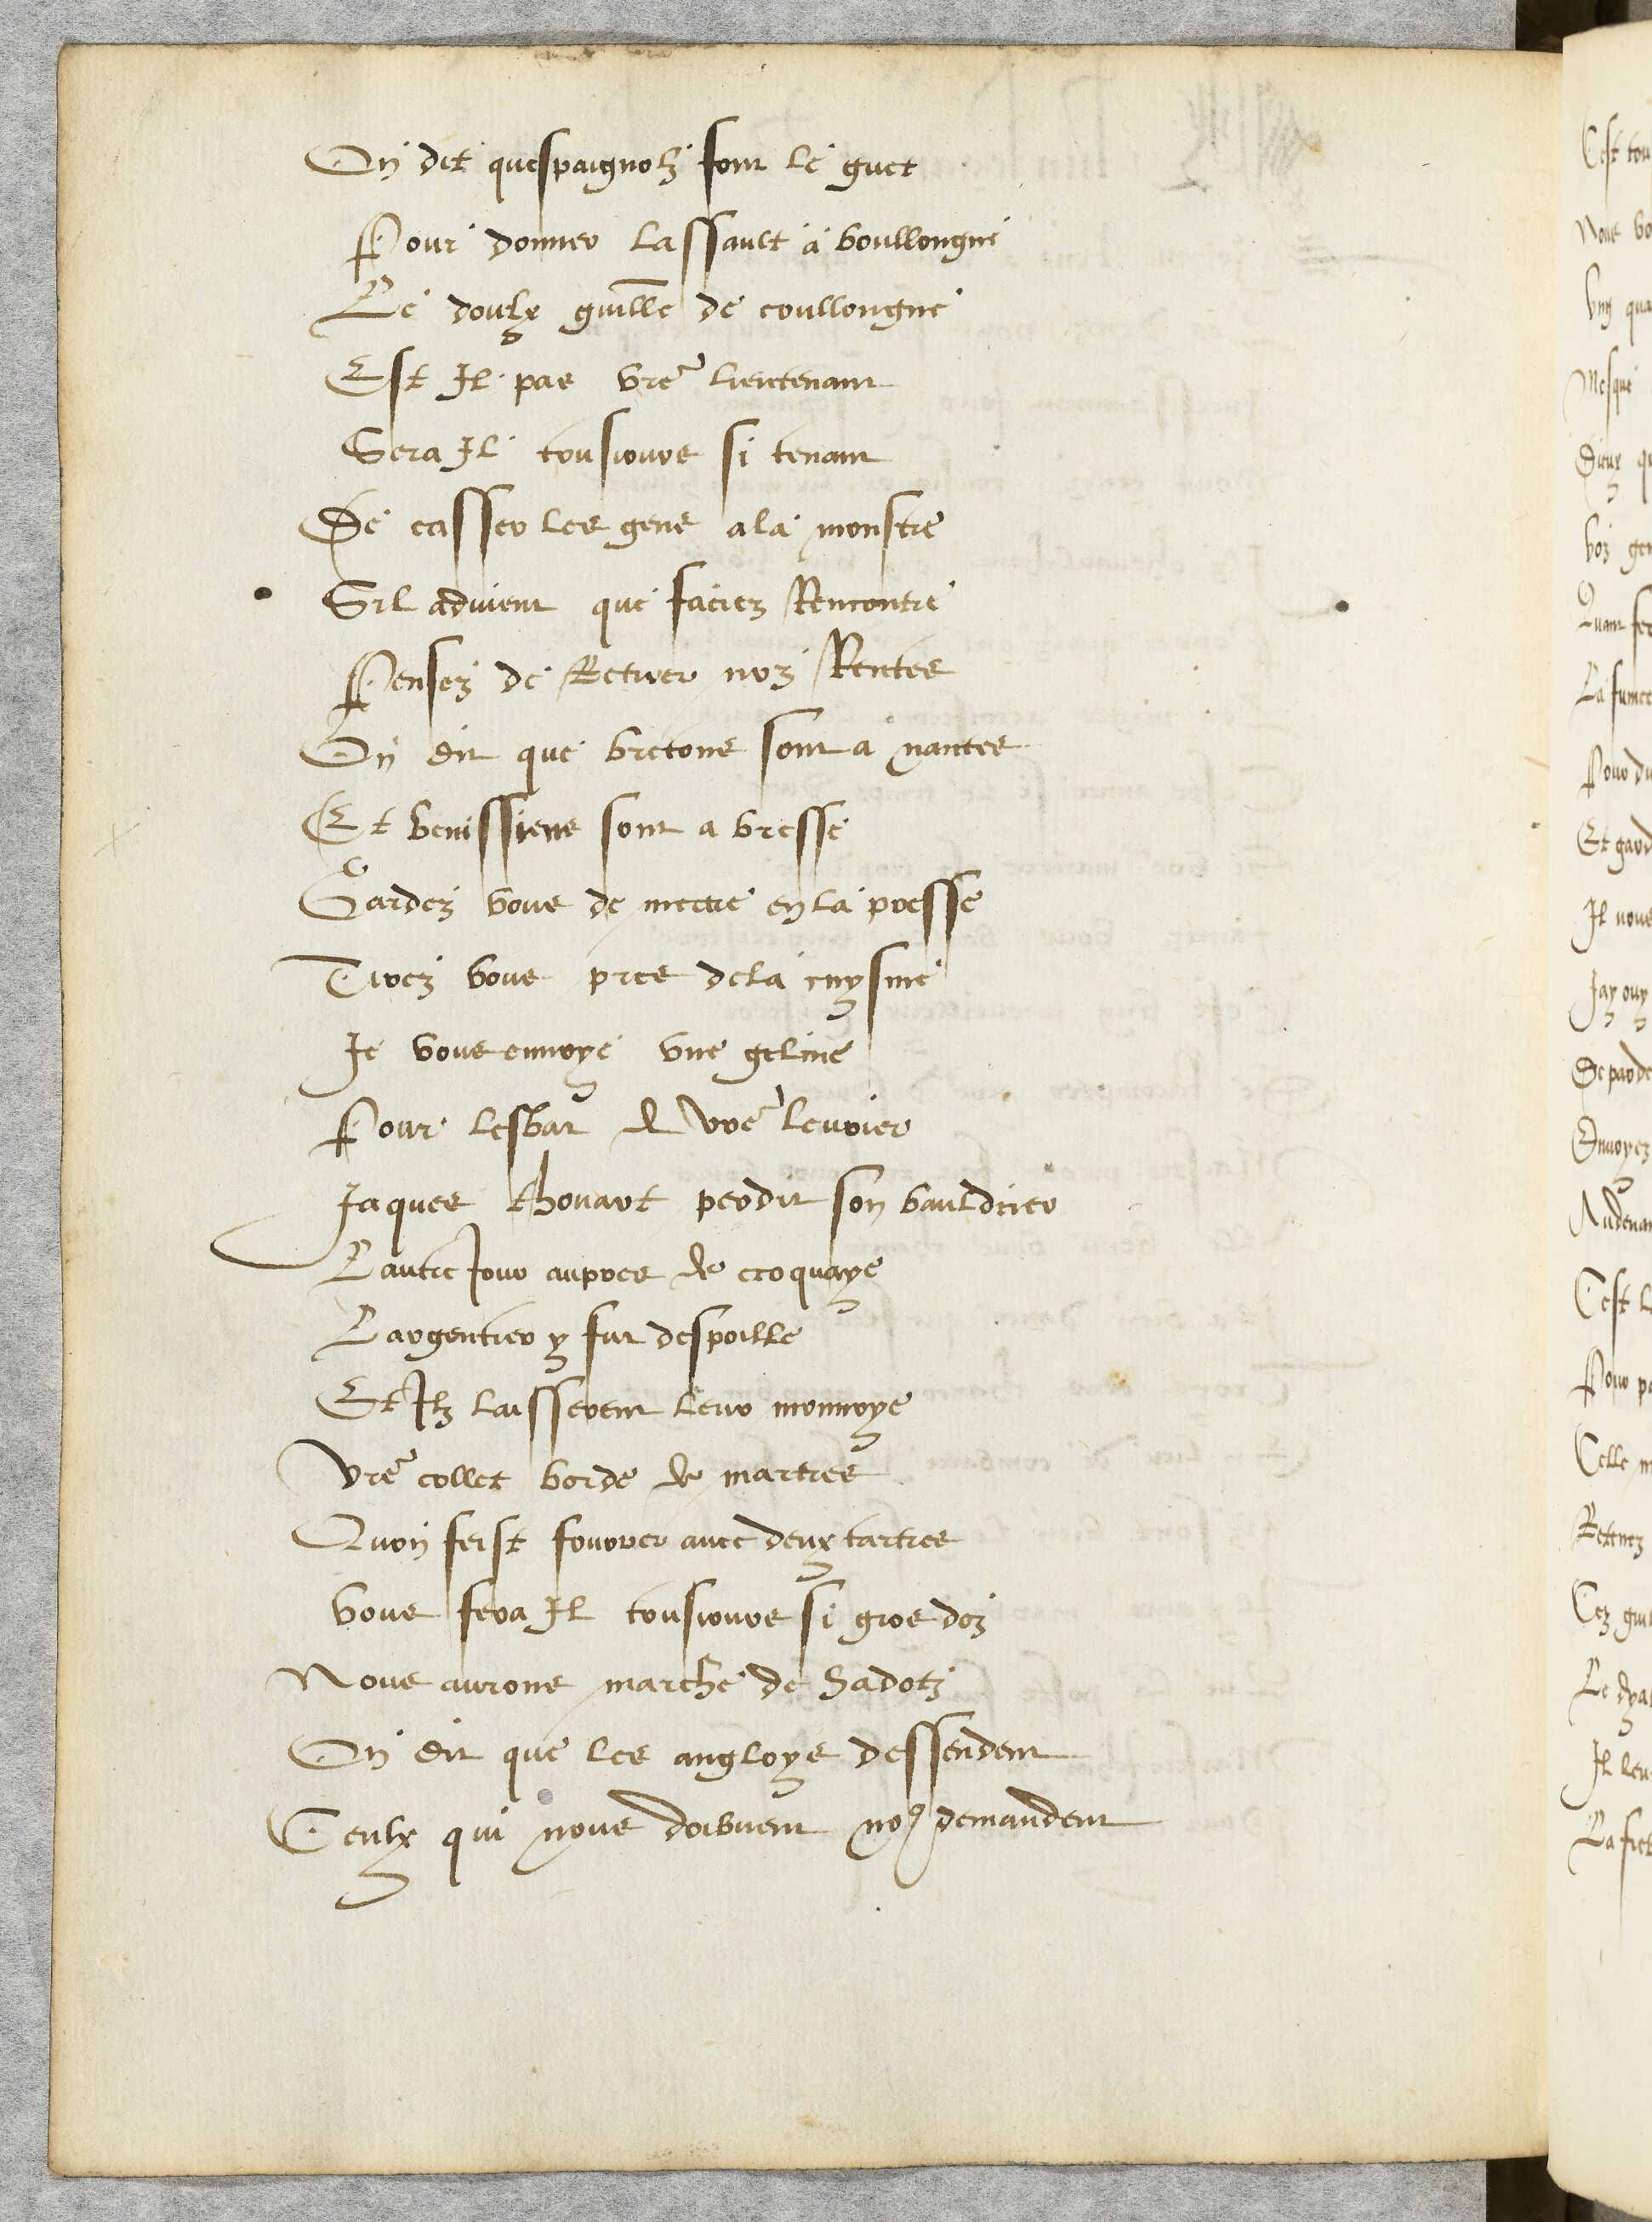 On dit quespaignolz font le guet
Pour donner lassault a boullongne
Le doulx guille de coullongne
Est Il pas vre lieutenant
Sera Il tousiours si tenant
De casser les gens a la monstre
Sil aduient que faciez Rencontre
Pensez de Retirer noz Rentes
On dit que bretons sont a nantes
Et venissiens sont a bresse
Gardez vous de mectre en la presse
Tirez vous pres de la cuysine
Je vous ennoye vne geline
Pour lesbat de vre leurier
Jaques thouart perdit son bauldrier
Lautre Jour aupres de croquaye
Largentier y fut despoille
Et Ilz laisserent leur monnoye
Vre collet borde de martres
Quon feist fourrer auec deux tartres
Vous fera Il tousiours si gros doz
Nous aurons marche de
On dit que les angloys dessendent
Ceulx qui nous doibuent noꝯ demandent
Cest
Nous
vng
Mesque
Dieux
voz
Quant
La fumee
Pour
Et
Il nous
Jay ouy
De
Enuoyez
Cest
Pour
Celle
Retenez
Cez
Le
Il
La